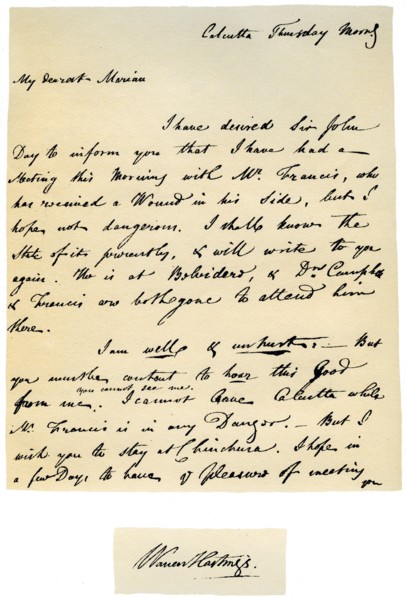 Calcutta Thursday Morng
My dearest Marian
I have desired Sir John
Day to inform you that I have had a
Meeting this Morning with Mr. Francis, who
has received a Wound in his Side, but I
hope not dangerous. I shall know the
State of it presently, & will write to you
again. He is at Belvidere, & Drs Campbell
& Francis are both gone to attend him
there.
I am well & unhurt. — But
you must be content to hear this Good
you cannot see me.
from me. I cannot leave Calcutta while
Mr Francis is in any Danger. — But I
wish you to stay at Chinchura. I hope in
a few Days to have ye pleasure of meeting
you
Warren Hastings.